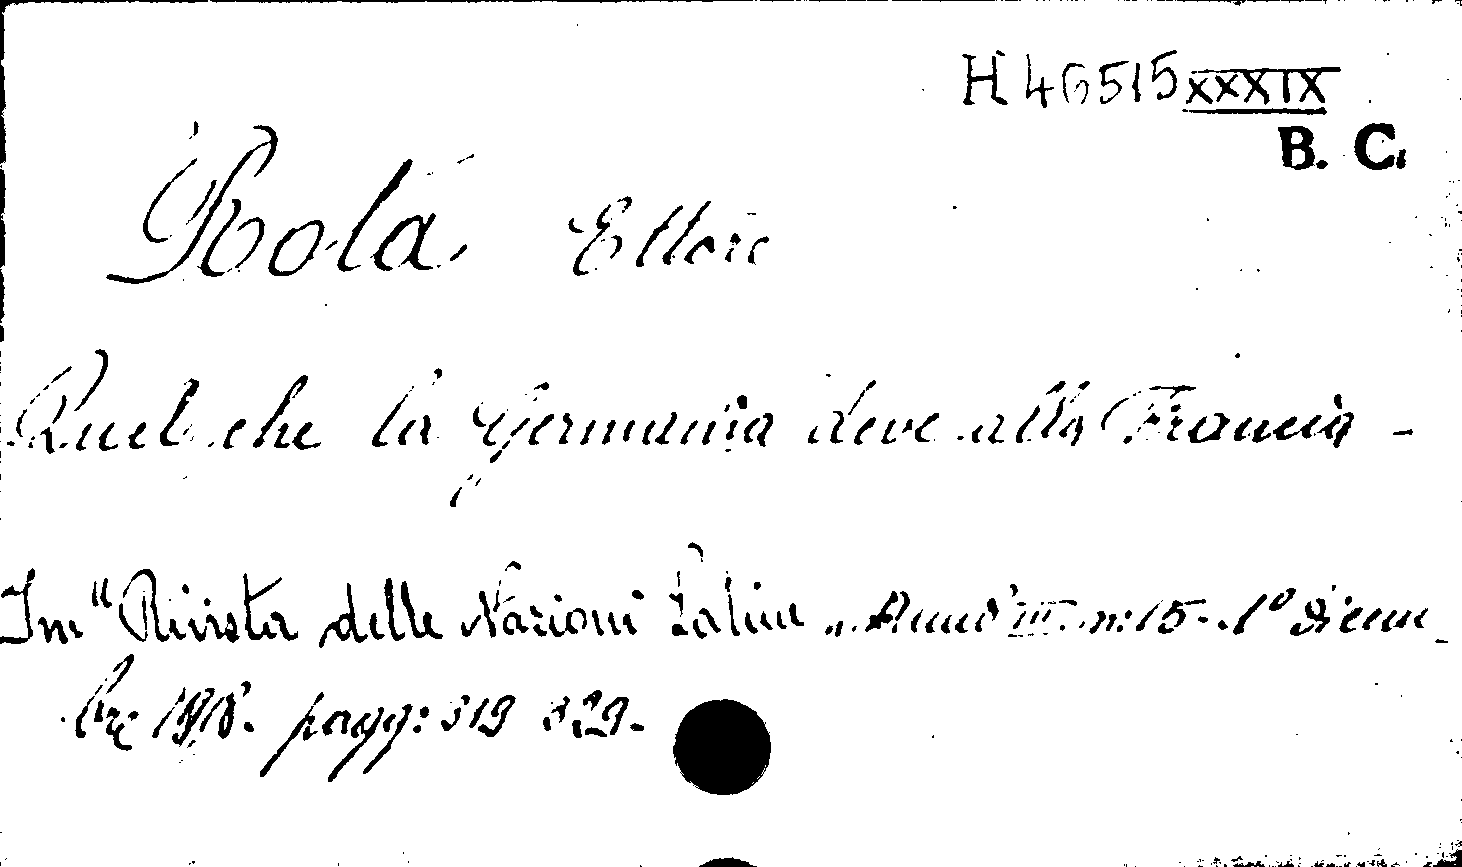 H 46515 XXXIX
B. C.
Rota Ettore
Quel che la Germania deve alla Francia -
In "Rivista delle Nazioni Latine „ Anno III. n: 15 - 1° Dicem-
bre 1918. pagg: 319 329-